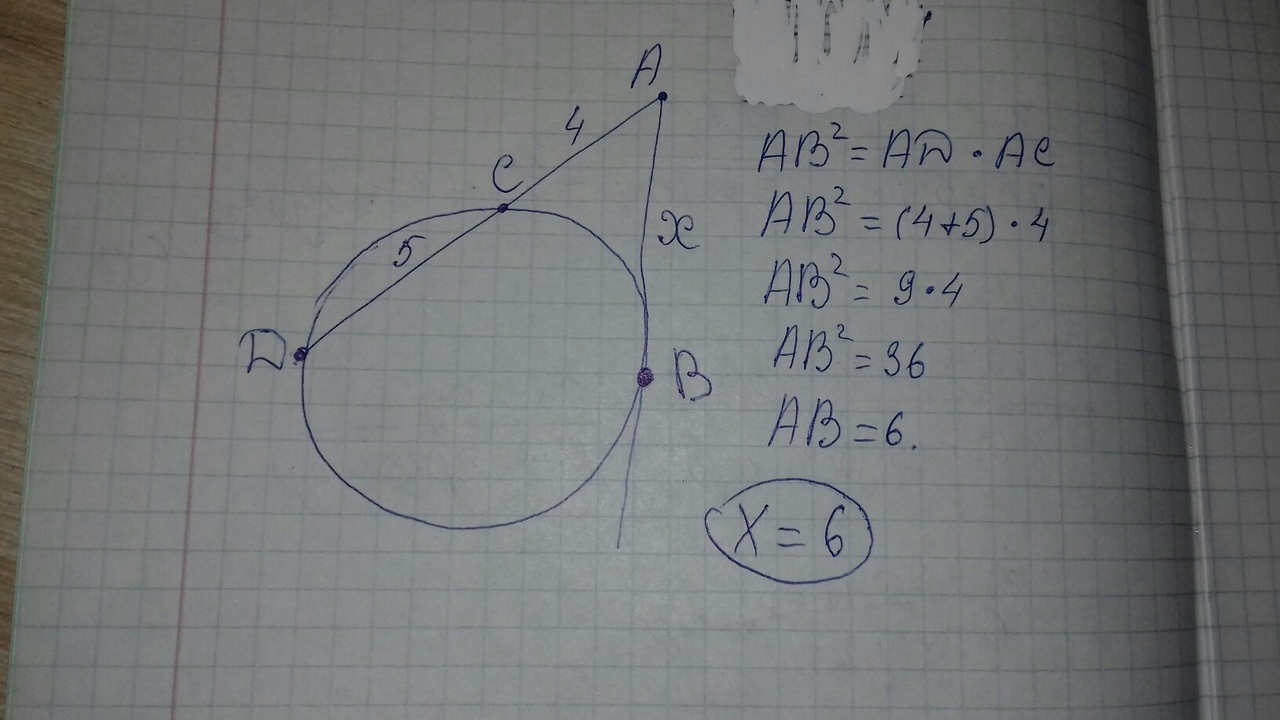 A
4
C
5
x
D
B
AB² = AD · AC
AB² = (4+5) · 4
AB² = 9 · 4
AB² = 36
AB = 6.
X = 6